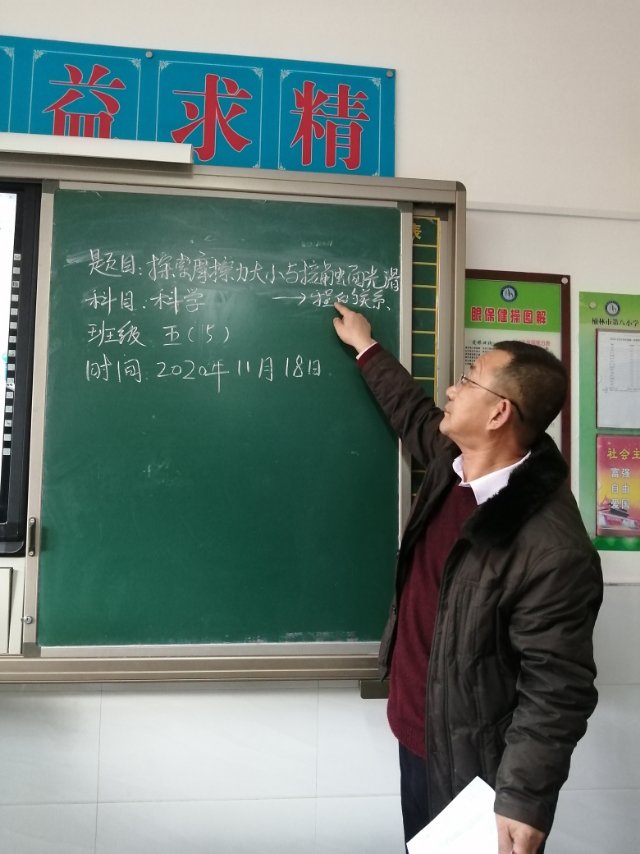 益求精
题目:探索摩擦力大小与接触面光滑
→程的关系
科目:科学
班级 五(5)
时间:2020年11月18日
表
眼保健操图解
榆林市第八小学
社会主
富强
自由
爱国